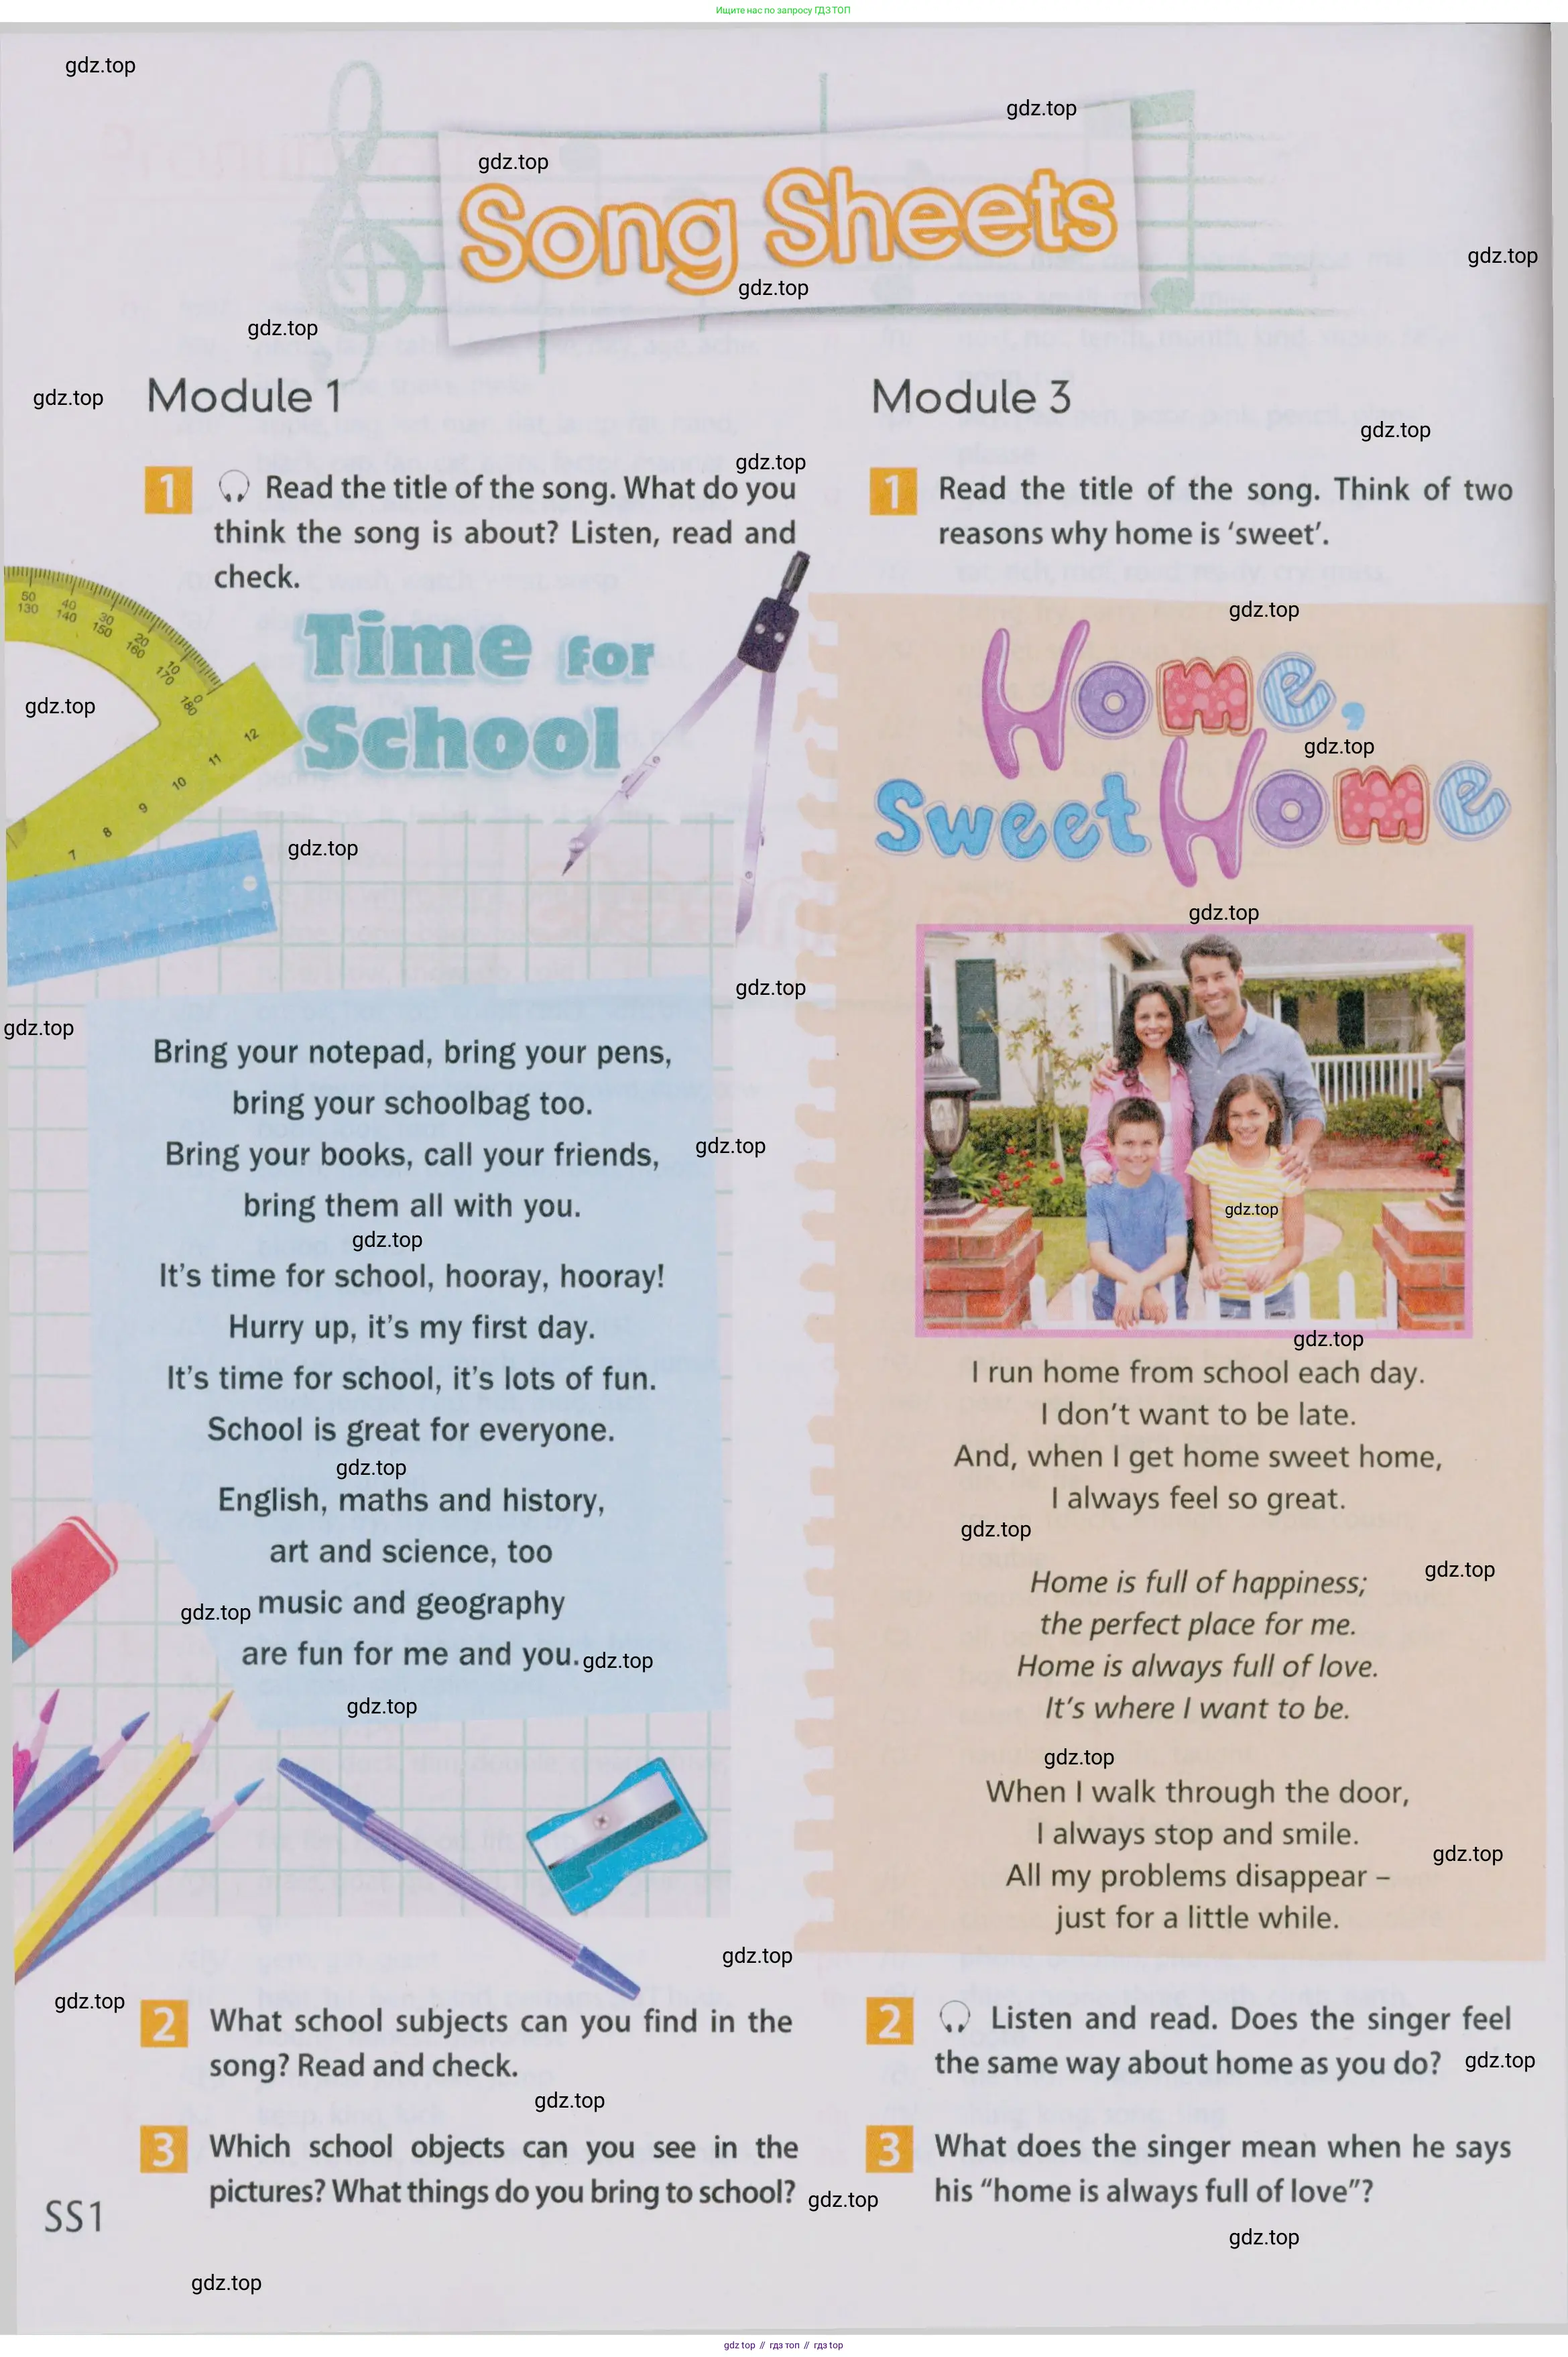 Ищите нас по запросу ГДЗ ТОП
gdz.top
gdz.top
gdz.top
Song Sheets
gdz.top
gdz.top
gdz.top
gdz.top
Module 1
gdz.top
1 Read the title of the song. What do you
think the song is about? Listen, read and
check.
Time for
School
50 40 30 20 10 0
130 140 150 160 170 180
12 11 10 9 8 7
gdz.top
gdz.top
gdz.top
gdz.top
Bring your notepad, bring your pens,
bring your schoolbag too.
Bring your books, call your friends,
gdz.top
bring them all with you.
gdz.top
It's time for school, hooray, hooray!
Hurry up, it's my first day.
It's time for school, it's lots of fun.
School is great for everyone.
gdz.top
English, maths and history,
art and science, too
gdz.top
music and geography
are fun for me and you.
gdz.top
gdz.top
gdz.top
gdz.top
2 What school subjects can you find in the
song? Read and check.
gdz.top
3 Which school objects can you see in the
pictures? What things do you bring to school?
gdz.top
SS1
gdz.top
Module 3
gdz.top
1 Read the title of the song. Think of two
reasons why home is 'sweet'.
gdz.top
Home,
gdz.top
Sweet Home
gdz.top
gdz.top
gdz.top
I run home from school each day.
I don't want to be late.
And, when I get home sweet home,
I always feel so great.
gdz.top
gdz.top
Home is full of happiness;
the perfect place for me.
Home is always full of love.
It's where I want to be.
gdz.top
When I walk through the door,
I always stop and smile.
gdz.top
All my problems disappear –
just for a little while.
2 Listen and read. Does the singer feel
the same way about home as you do?
gdz.top
3 What does the singer mean when he says
his "home is always full of love"?
gdz.top
gdz top // гдз топ // гдз top